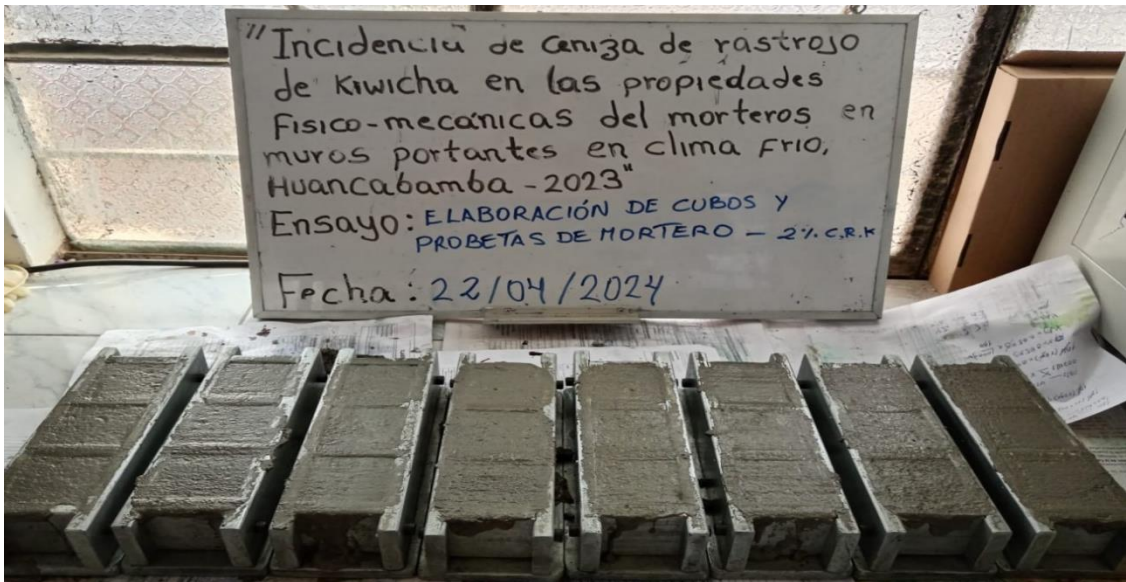 "Incidencia de ceniza de rastrojo
de Kiwicha en las propiedades
Fisico-mecánicas del morteros en
muros portantes en clima Frio,
Huancabamba - 2023"
Ensayo: ELABORACIÓN DE CUBOS Y
PROBETAS DE MORTERO - 2% C.R.K
Fecha: 22/04/2024